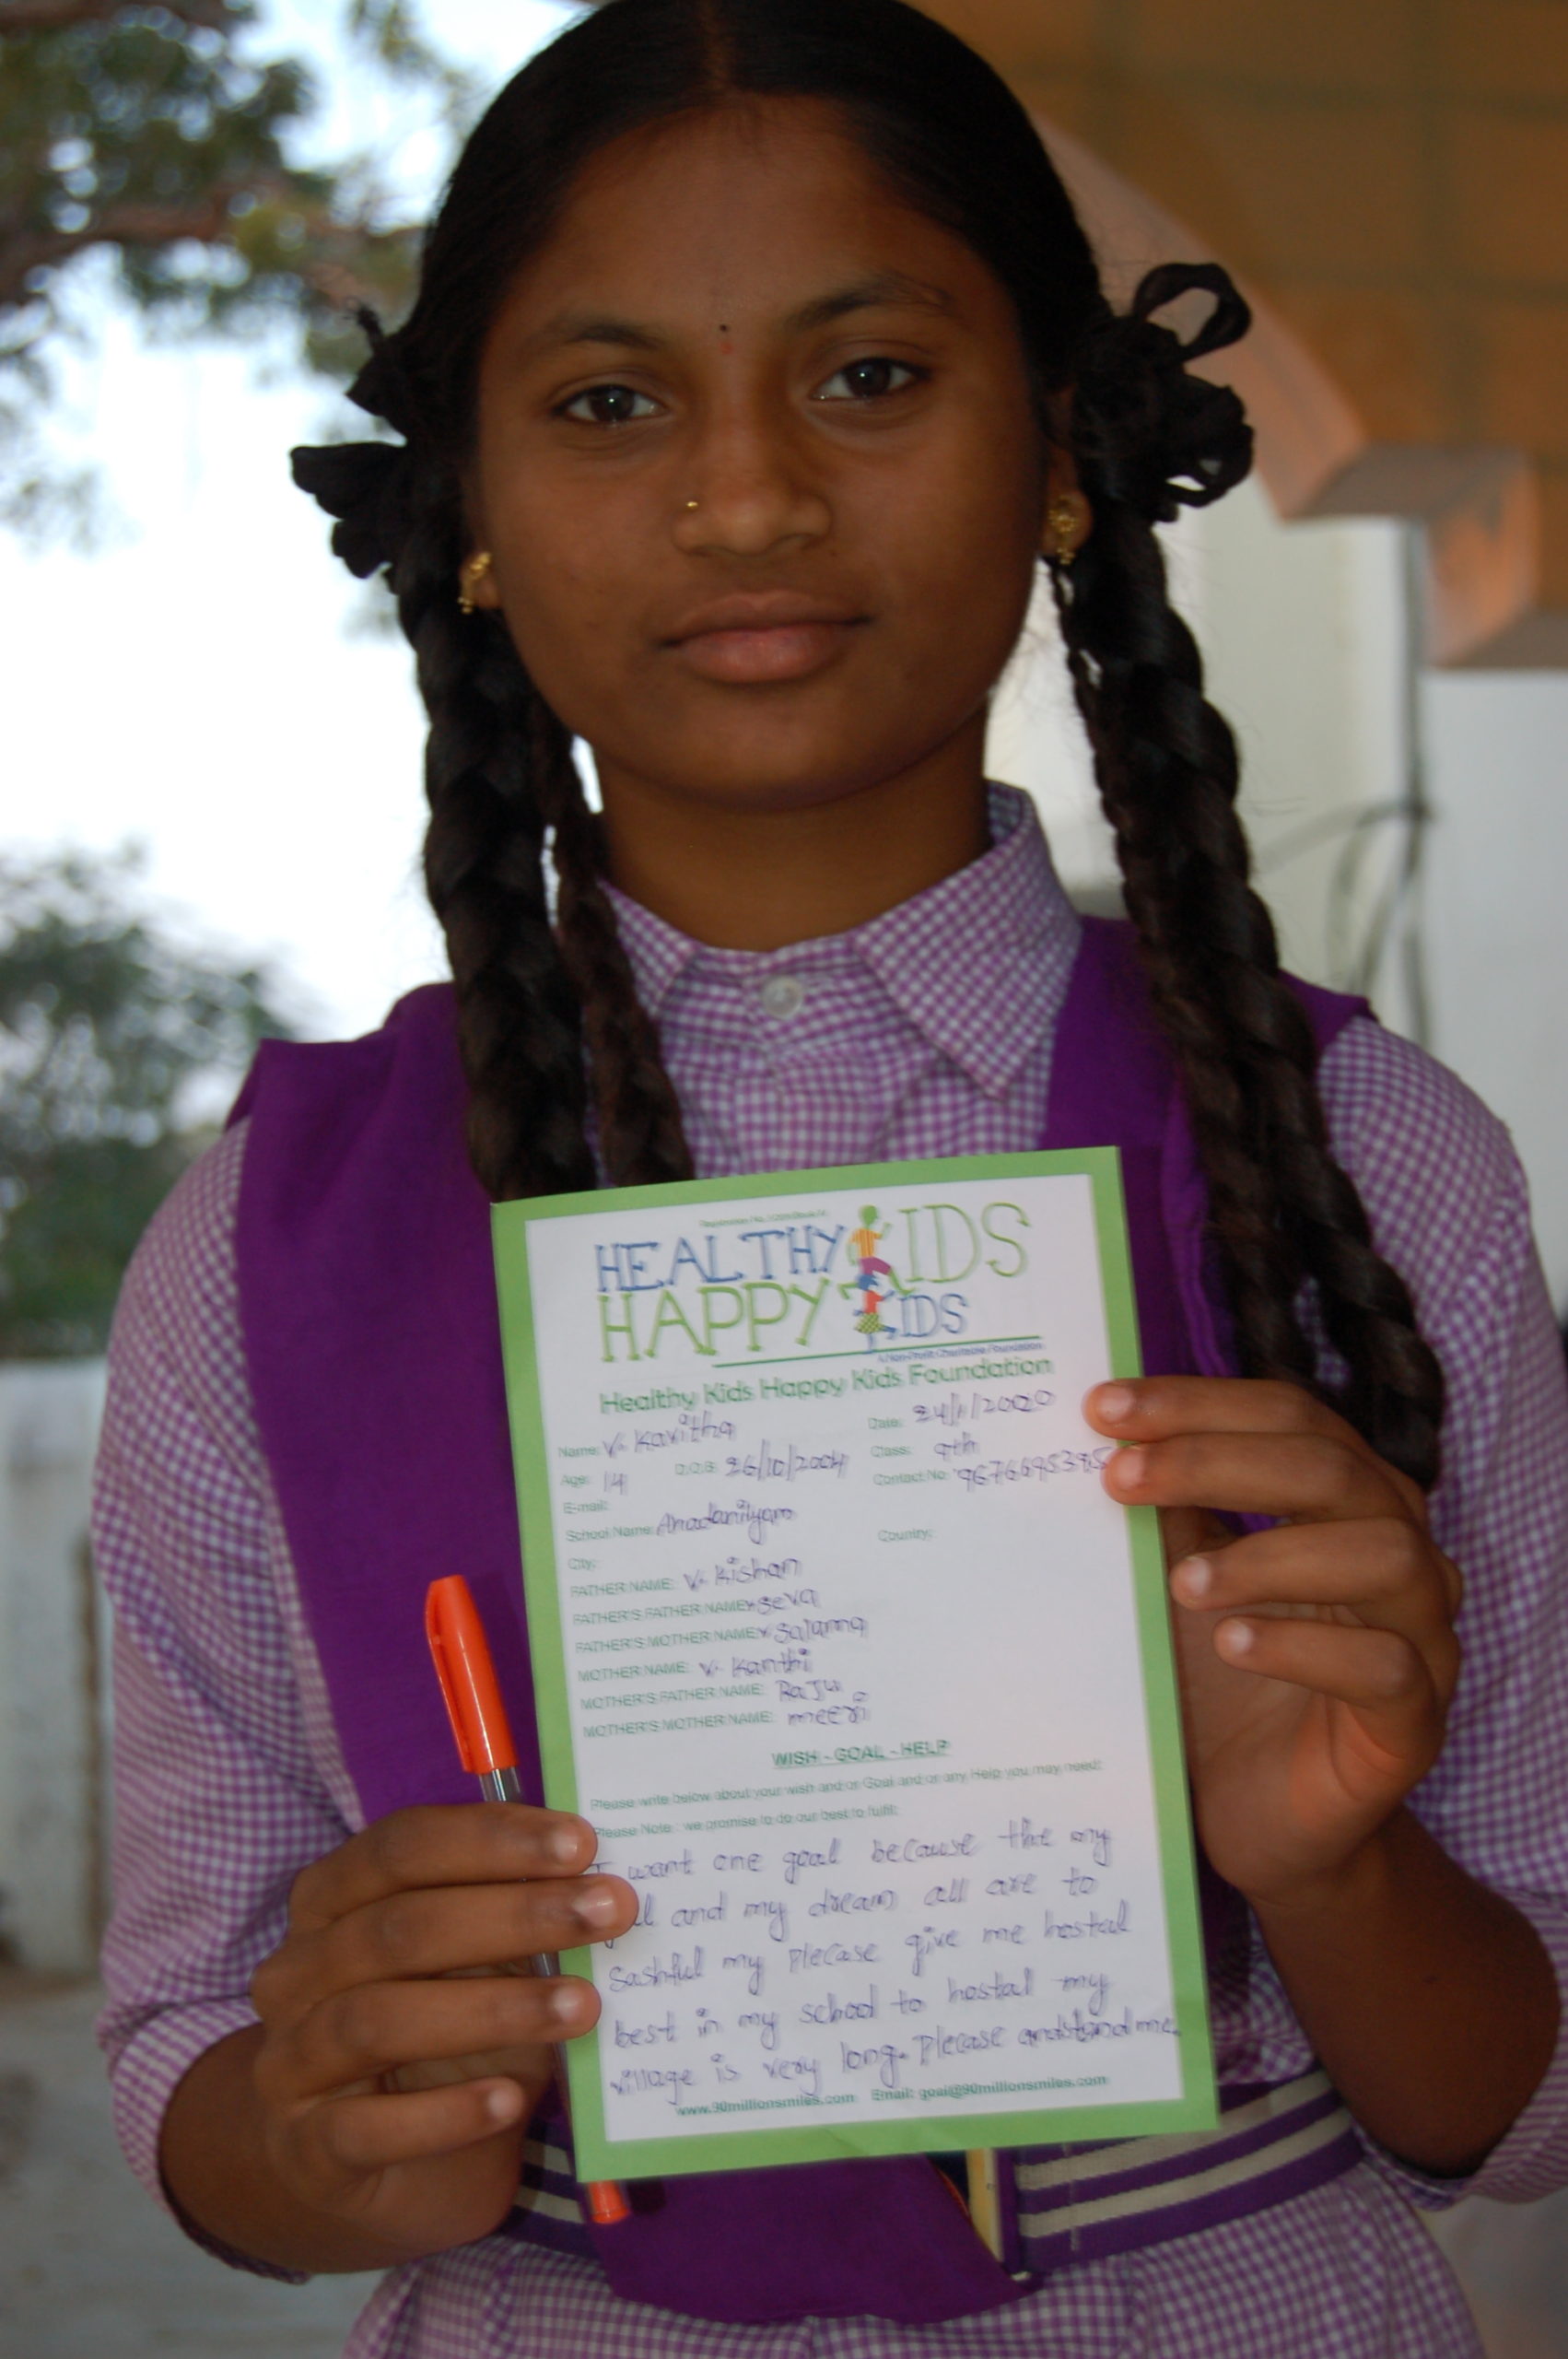 HEALTHY KIDS
HAPPY KIDS
A Non-Profit Charitable Foundation
Healthy Kids Happy Kids Foundation
Name: V. Kavitha Date: 24/1/2020
Age: 14 D.O.B: 26/10/2004 Class: 9th
E-mail: Contact No:
School Name:
City: Country:
FATHER NAME: V. Kishan
FATHER'S FATHER NAME: seva
FATHER'S MOTHER NAME:
MOTHER NAME: V. Kanthi
MOTHER'S FATHER NAME: Raju
MOTHER'S MOTHER NAME:
WISH - GOAL - HELP
Please write below about your wish and or Goal and or any Help you may need:
Please Note : we promise to do our best to fulfil:
I want one goal because the my
and my dream all are to
sashful my plecase give me hostal
best in my school to hostal my
village is very long. plecase andstand me.
www.90millionsmiles.com Email: goal@90millionsmiles.com